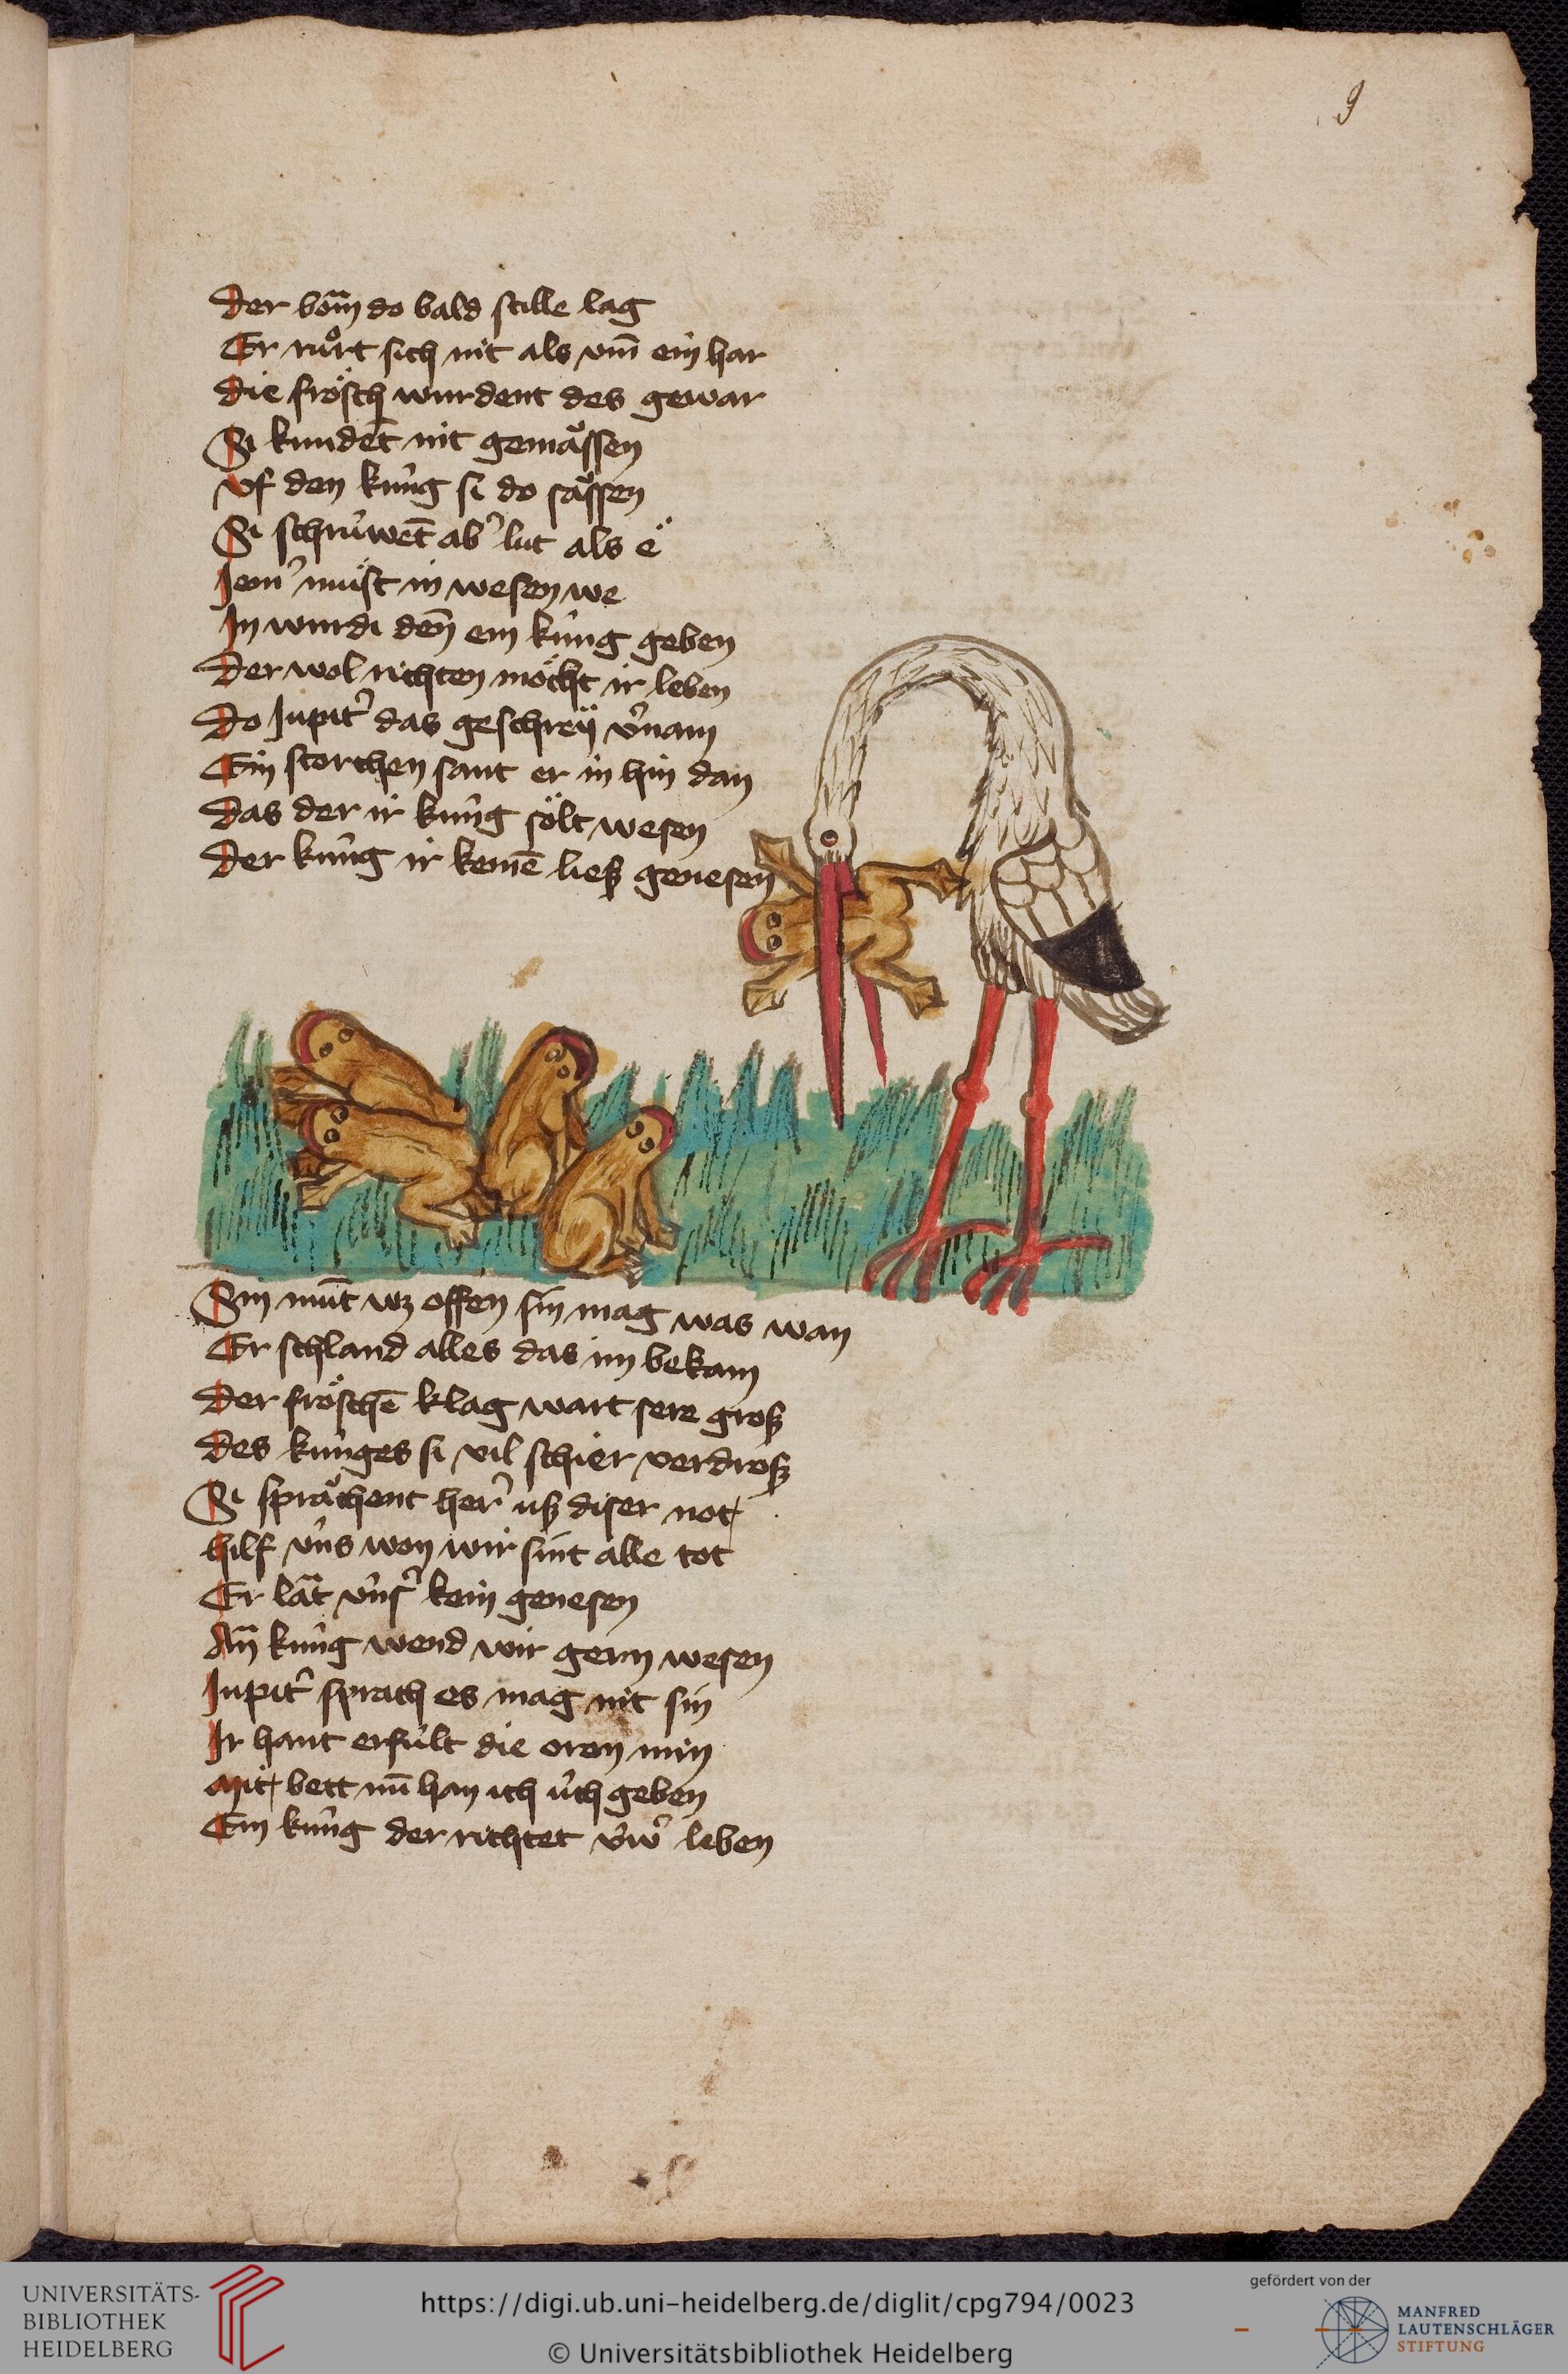 9
Der bom̄ do bald stille lag
Er ruͦrt sich nit als vm̄ ein har
Die froͤsch wurdent des gewar
Si kundēt nit gemaͤssen
Vf den kuͥng si do saͤssen
Si schruͥwēt ab' lut als e
Jem' muͤst in wesen we
In wurdi den̄ ein kuͥng geben
Der wol richten moͤcht ir leben
Do Jupit' das geschreÿ v'nam
Ein storchen sant er in hin dan
Das der ir kuͥng soͤlt wesen
Der kuͥng ir kemē ließ genesen
Sin mūt wz offen sin mag was wan
Er schland alles das im bekam
Der froͤschē klag wart sere groß
Des kuͥnges si vil schier verdroß
Si spraͤchent her' uß diser not
Hilf vͥns won wir sint alle tot
Er lāt vͥns' kein genesen
An̄ kuͥng wend wir gern wesen
Jupit' sprach es mag nit sin
Ir hant erfuͥlt die oren min
Mit bett nū han ich uͥch geben
Ein kuͥng der richtet vͥw' leben
UNIVERSITÄTS-
BIBLIOTHEK
HEIDELBERG
https://digi.ub.uni-heidelberg.de/diglit/cpg794/0023
© Universitätsbibliothek Heidelberg
gefördert von der
MANFRED
LAUTENSCHLÄGER
STIFTUNG